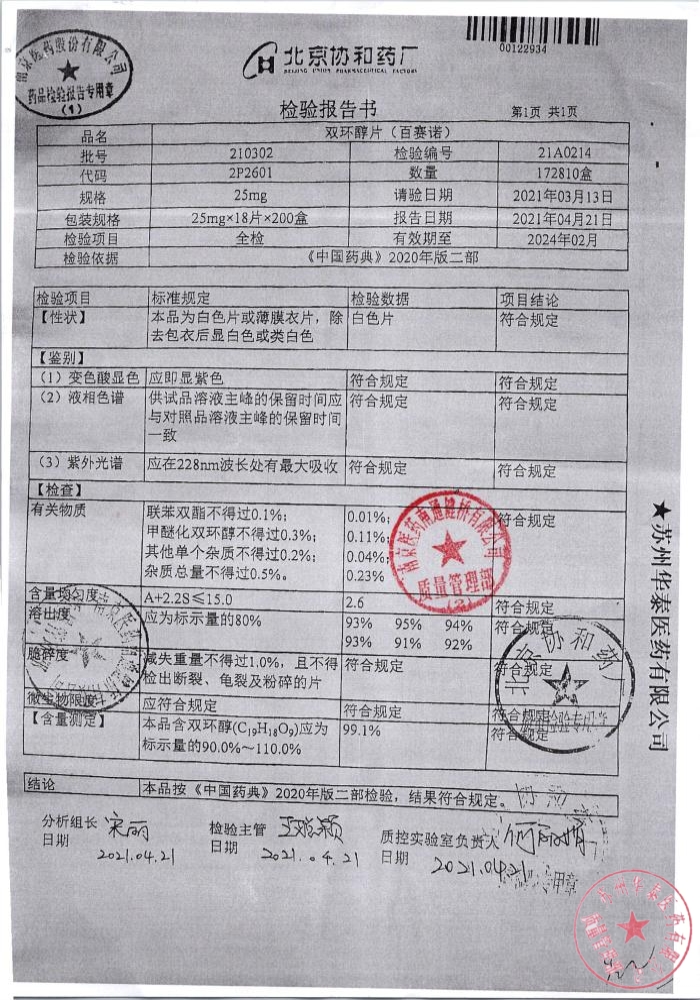 00122934
北京协和药厂
BEIJING UNION PHARMACEUTICAL FACTORY
南京医药股份有限公司
药品检验报告专用章
(1)
检验报告书
第1页 共1页
品名 双环醇片（百赛诺）
批号 210302 检验编号 21A0214
代码 2P2601 数量 172810盒
规格 25mg 请验日期 2021年03月13日
包装规格 25mg×18片×200盒 报告日期 2021年04月21日
检验项目 全检 有效期至 2024年02月
检验依据 《中国药典》2020年版二部
检验项目 标准规定 检验数据 项目结论
【性状】 本品为白色片或薄膜衣片，除 白色片 符合规定
去包衣后显白色或类白色
【鉴别】
（1）变色酸显色 应即显紫色 符合规定 符合规定
（2）液相色谱 供试品溶液主峰的保留时间应 符合规定 符合规定
与对照品溶液主峰的保留时间
一致
（3）紫外光谱 应在228nm波长处有最大吸收 符合规定 符合规定
【检查】
有关物质 联苯双酯不得过0.1%； 0.01%； 符合规定
甲醚化双环醇不得过0.3%； 0.11%；
其他单个杂质不得过0.2%； 0.04%；
杂质总量不得过0.5%。 0.23%
含量均匀度 A+2.2S≤15.0 2.6 符合规定
溶出度 应为标示量的80% 93% 95% 94% 符合规定
93% 91% 92%
脆碎度 减失重量不得过1.0%，且不得 符合规定 符合规定
检出断裂、龟裂及粉碎的片
微生物限度 应符合规定 符合规定 符合规定
【含量测定】 本品含双环醇(C₁₉H₁₈O₉)应为 99.1% 符合规定
标示量的90.0%～110.0%
结论 本品按《中国药典》2020年版二部检验，结果符合规定。
分析组长 宋丽 检验主管 质控实验室负责人
日期 2021.04.21 日期 2021.04.21 日期 2021.04.21
质量管理部
(2)
北京协和药厂
★苏州华泰医药有限公司
苏州华泰医药有限公司